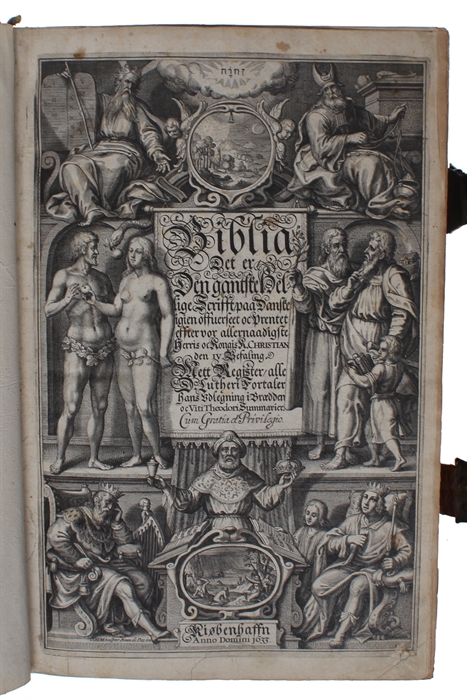 יהוה
Biblia
Det er
Den gantske Hel-
lige Scrifft, paa Danske
igien offuerseet oc Prentet
effter vor allernaadigste
Herris oc Kongis K. CHRISTIAN
den IV. Befaling
Mett Register / alle
D. Lutheri Fortaler
hans Vdlegning i Brædden
oc Viti Theodori Summarier.
Cum Gratia et Privilegio.
Kiøbenhaffn
Anno Domini 1633